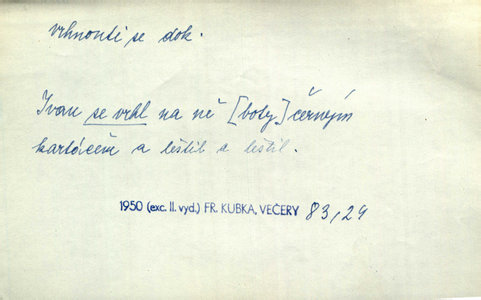 vrhnouti se dok.
Ivan se vrhl na ně [boty] černým
kartáčem a leštil a leštil.
1950 (exc. II. vyd.) FR. KUBKA, VEČERY 83,29